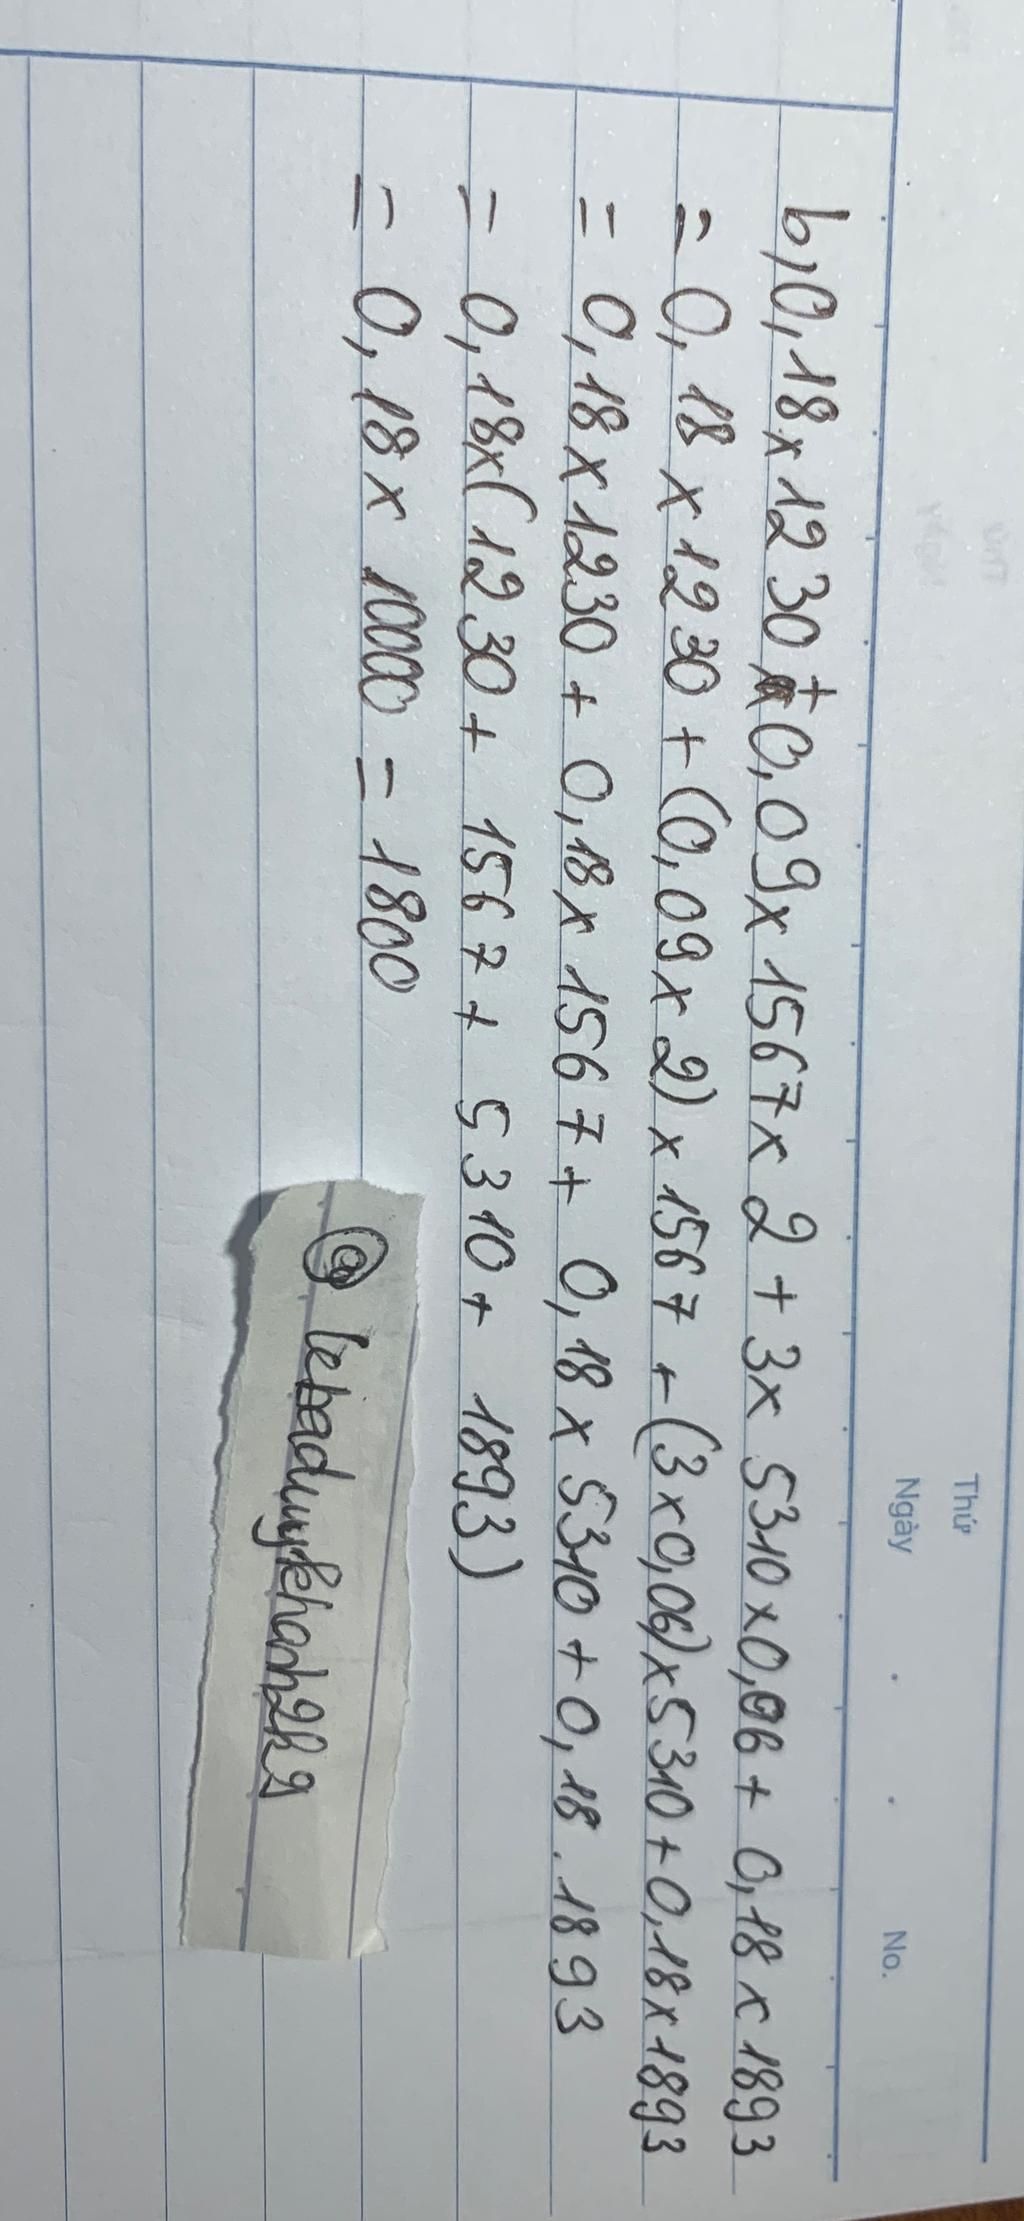 Thứ
Ngày . . No.
b, 0,18 x 1230 + 0,09 x 1567 x 2 + 3 x 5310 x 0,06 + 0,18 x 1893
= 0,18 x 1230 + (0,09 x 2) x 1567 + (3 x 0,06) x 5310 + 0,18 x 1893
= 0,18 x 1230 + 0,18 x 1567 + 0,18 x 5310 + 0,18 . 1893
= 0,18 x (1230 + 1567 + 5310 + 1893)
= 0,18 x 10000 = 1800
@ lebaduykhanh2k9